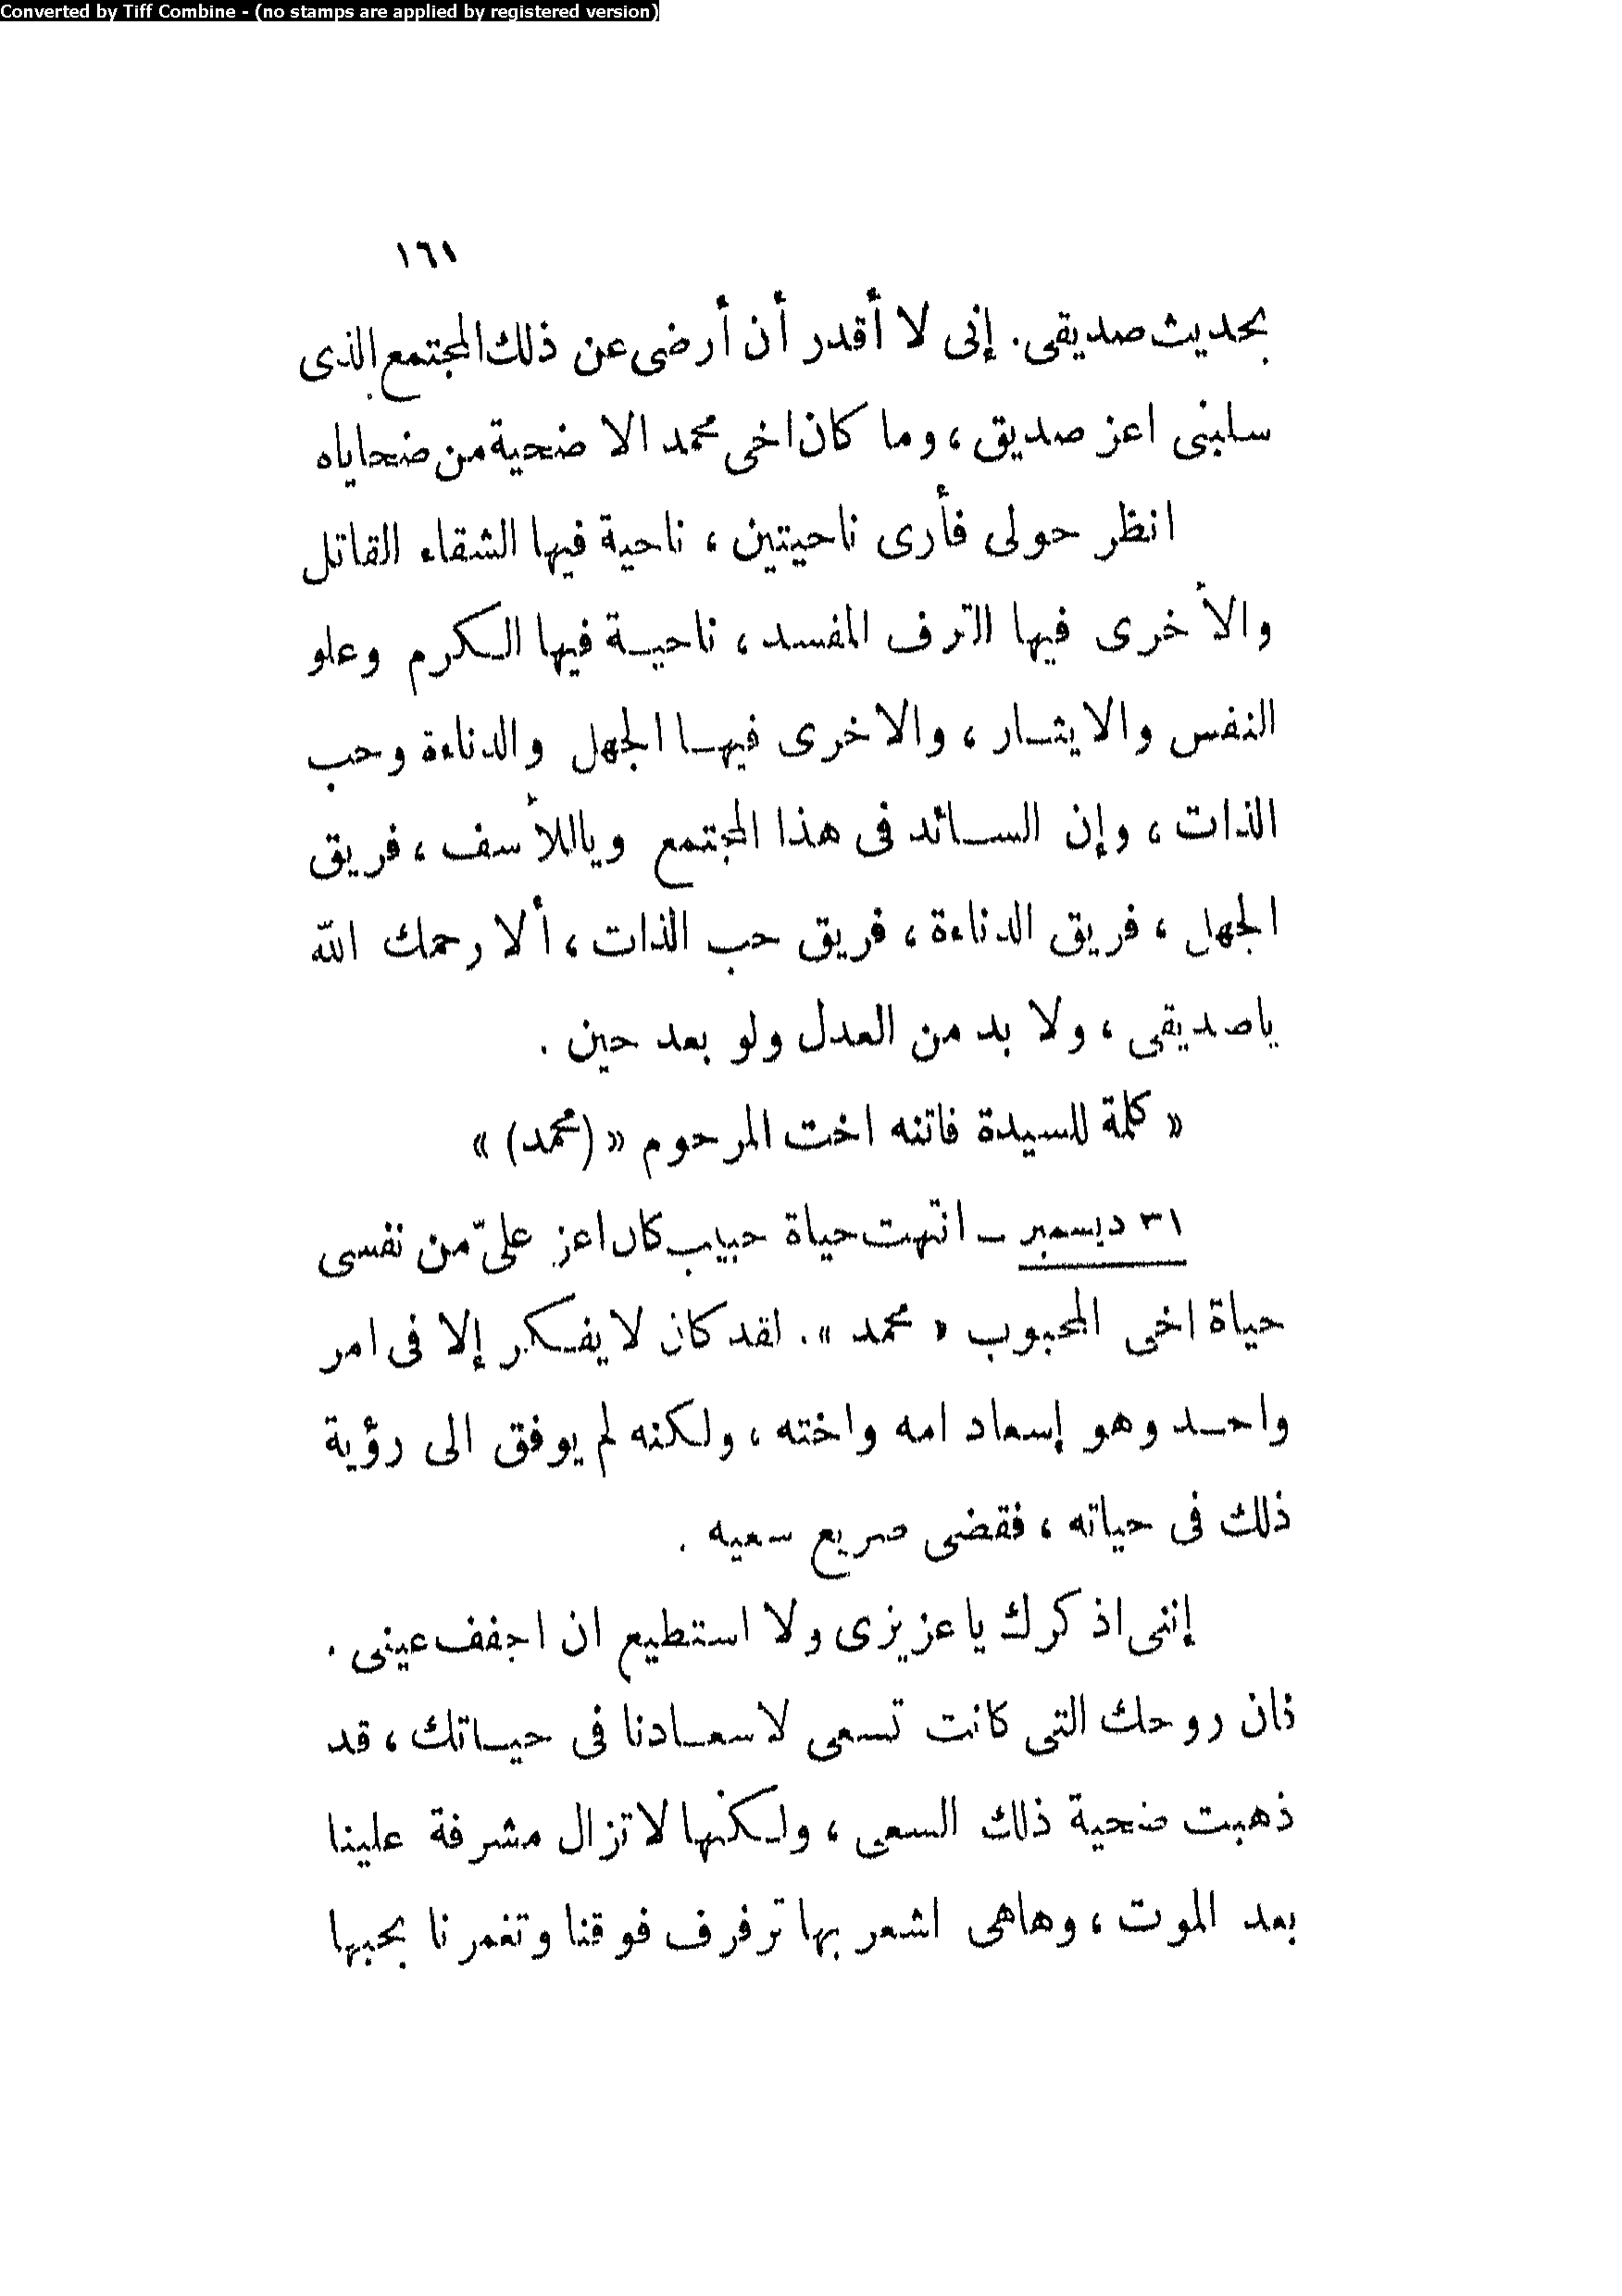 Converted by Tiff Combine - (no stamps are applied by registered version)
١٦١
بحديث صديقى. إنى لا أقدر أن أرضى عن ذلك المجتمع الذى
سلبنى اعز صديق ، وما كان اخى محمد الا ضحية من ضحاياه
انظر حولى فأرى ناحيتين ، ناحية فيها الشقاء القاتل
والأخرى فيها الترف المفسد ، ناحيـة فيها الـكرم وعلو
النفس والايثـار ، والاخرى فيهـا الجهل والدناءة وحب
الذات ، وإن السـائد فى هذا المجتمع وياللأسف ، فريق
الجهل ، فريق الدناءة ، فريق حب الذات ، ألا رحمك الله
ياصديقى ، ولا بد من العدل ولو بعد حين .
« كلمة للسيدة فاتنه اخت المرحوم « (محمد) »
٣١ ديسمبر – انتهت حياة حبيب كان اعز علىّ من نفسى
حياة اخى المحبوب « محمد ». لقد كان لا يفـكر إلا فى امر
واحـد وهو إسعاد امه واخته ، ولكنه لم يوفق الى رؤية
ذلك فى حياته ، فقضى صريع سعيه .
إننى اذكرك ياعزيزى ولا استطيع ان اجفف عينى .
فان روحك التى كانت تسعى لاسعـادنا فى حيـاتك ، قد
ذهبت ضحية ذلك السعى ، ولـكنها لاتزال مشرفة علينا
بعد الموت ، وهاهى اشعر بها ترفرف فوقنا وتغمرنا بحبها